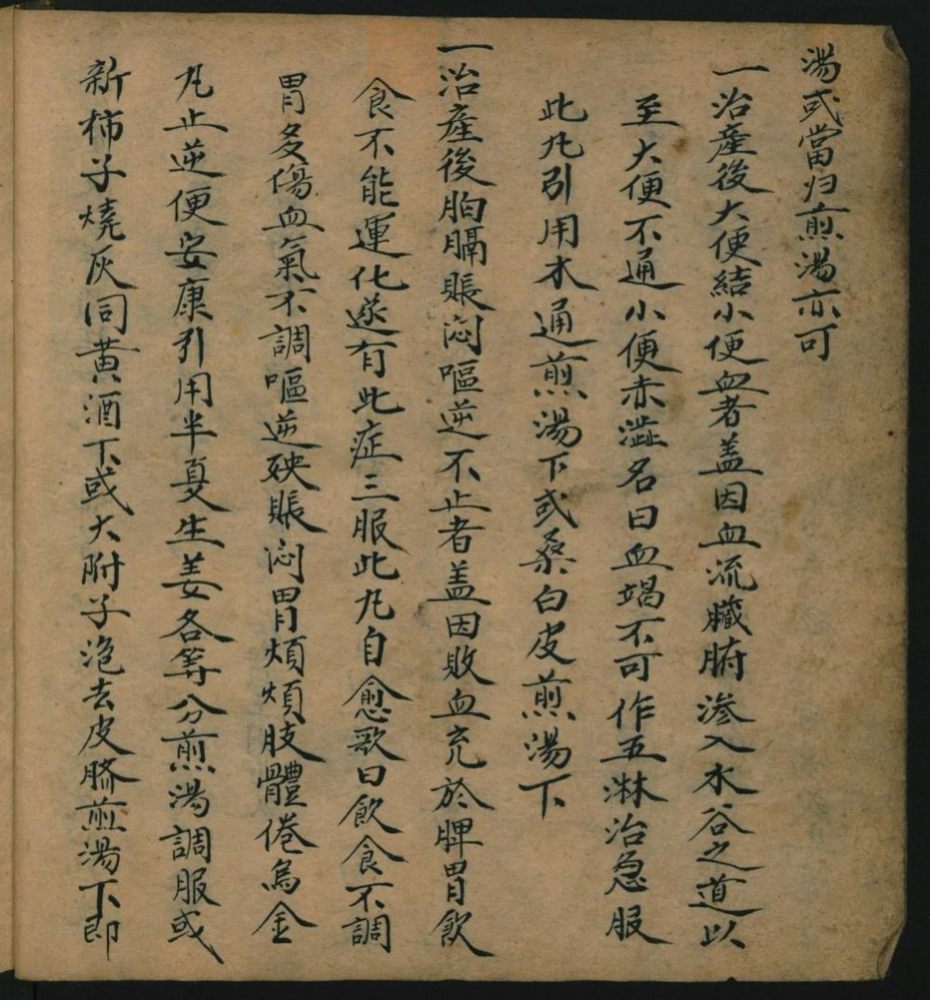 湯或當归煎湯亦可
一治產後大便結小便血者盖因血流臓腑渗入水谷之道以
至大便不通小便赤澁名曰血竭不可作五淋治急服
此凡引用木通煎湯下或桑白皮煎湯下
一治產後胸膈賬闷嘔逆不止者盖因敗血充於脾胃飲
食不能運化遂有此症三服此凡自愈歌曰飲食不調
胃多傷血氣不調嘔逆殃賬闷胃煩煩肢體倦烏金
凡止逆便安康引用半夏生姜各等分煎湯調服或
新柿子燒灰同黄酒下或大附子泡去皮臍煎湯下即